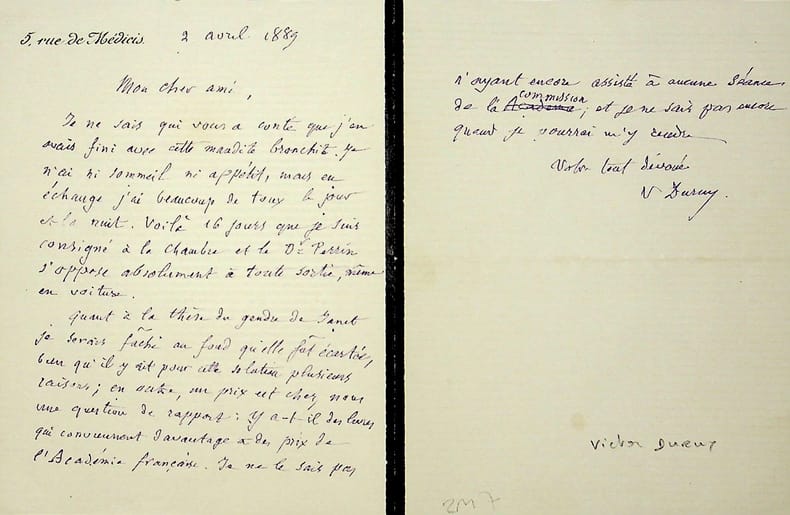 5, rue de Médicis. 2 avril 1889
Mon cher ami,
Je ne sais qui vous a conté que j'en
avais fini avec cette maudite bronchite. Je
n'ai ni sommeil ni appétit, mais en
échange j'ai beaucoup de toux le jour
et la nuit. Voilà 16 jours que je suis
consigné à la chambre et le Dr. Perrin
s'oppose absolument à toute sortie, même
en voiture.
Quant à la thèse du gendre de Janet
je serais fâché au fond qu'elle fût écartée,
bien qu'il y ait pour cette solution plusieurs
raisons ; en outre, un prix est chez nous
une question de rapport : y a-t-il des livres
qui conviennent davantage à des prix de
l'Académie française. Je ne le sais pas
n'ayant encore assisté à aucune séance
commission
de la Académie ; et je ne sais pas encore
quand je pourrai m'y rendre
Votre tout dévoué
V Duruy.
Victor Duruy